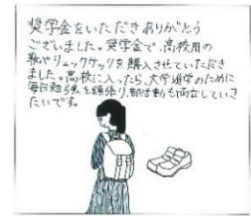 奨学金をいただきありがとう
ございました。奨学金で、高校用の
靴やリュックサックを購入させていただき
ました。高校に入ったら、大学進学のために
毎日勉強を頑張り、部活動も両立していき
たいです。